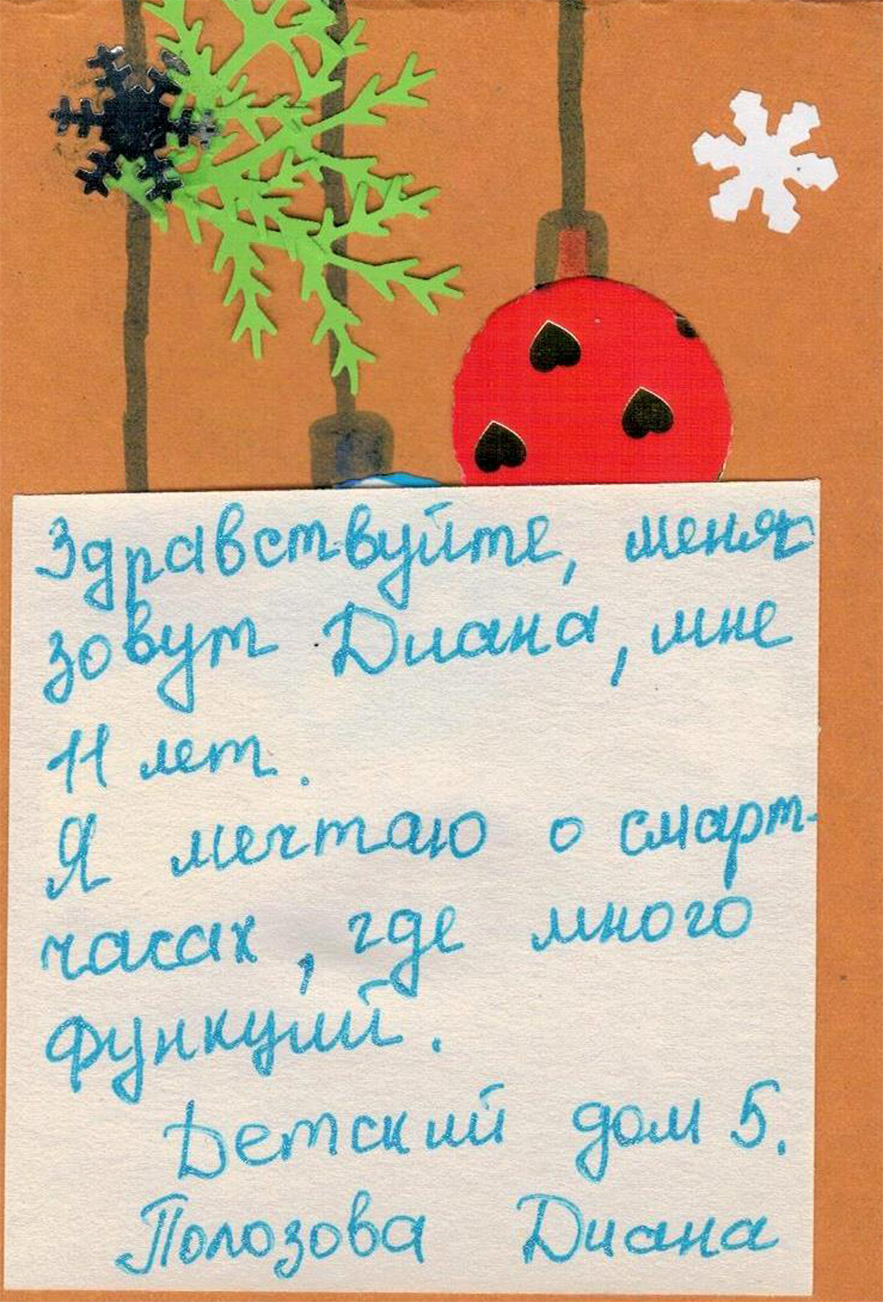 Здравствуйте, меня
зовут Диана, мне
11 лет.
Я мечтаю о смарт-
часах, где много
функций.
Детский дом 5.
Полозова Диана